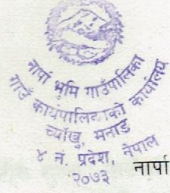 नार्पा भूमि गाउँपालिका
गाउँ कार्यपालिकाको कार्यालय
च्याँखु, मनाङ
४ नं. प्रदेश, नेपाल
२०७३
नार्पा